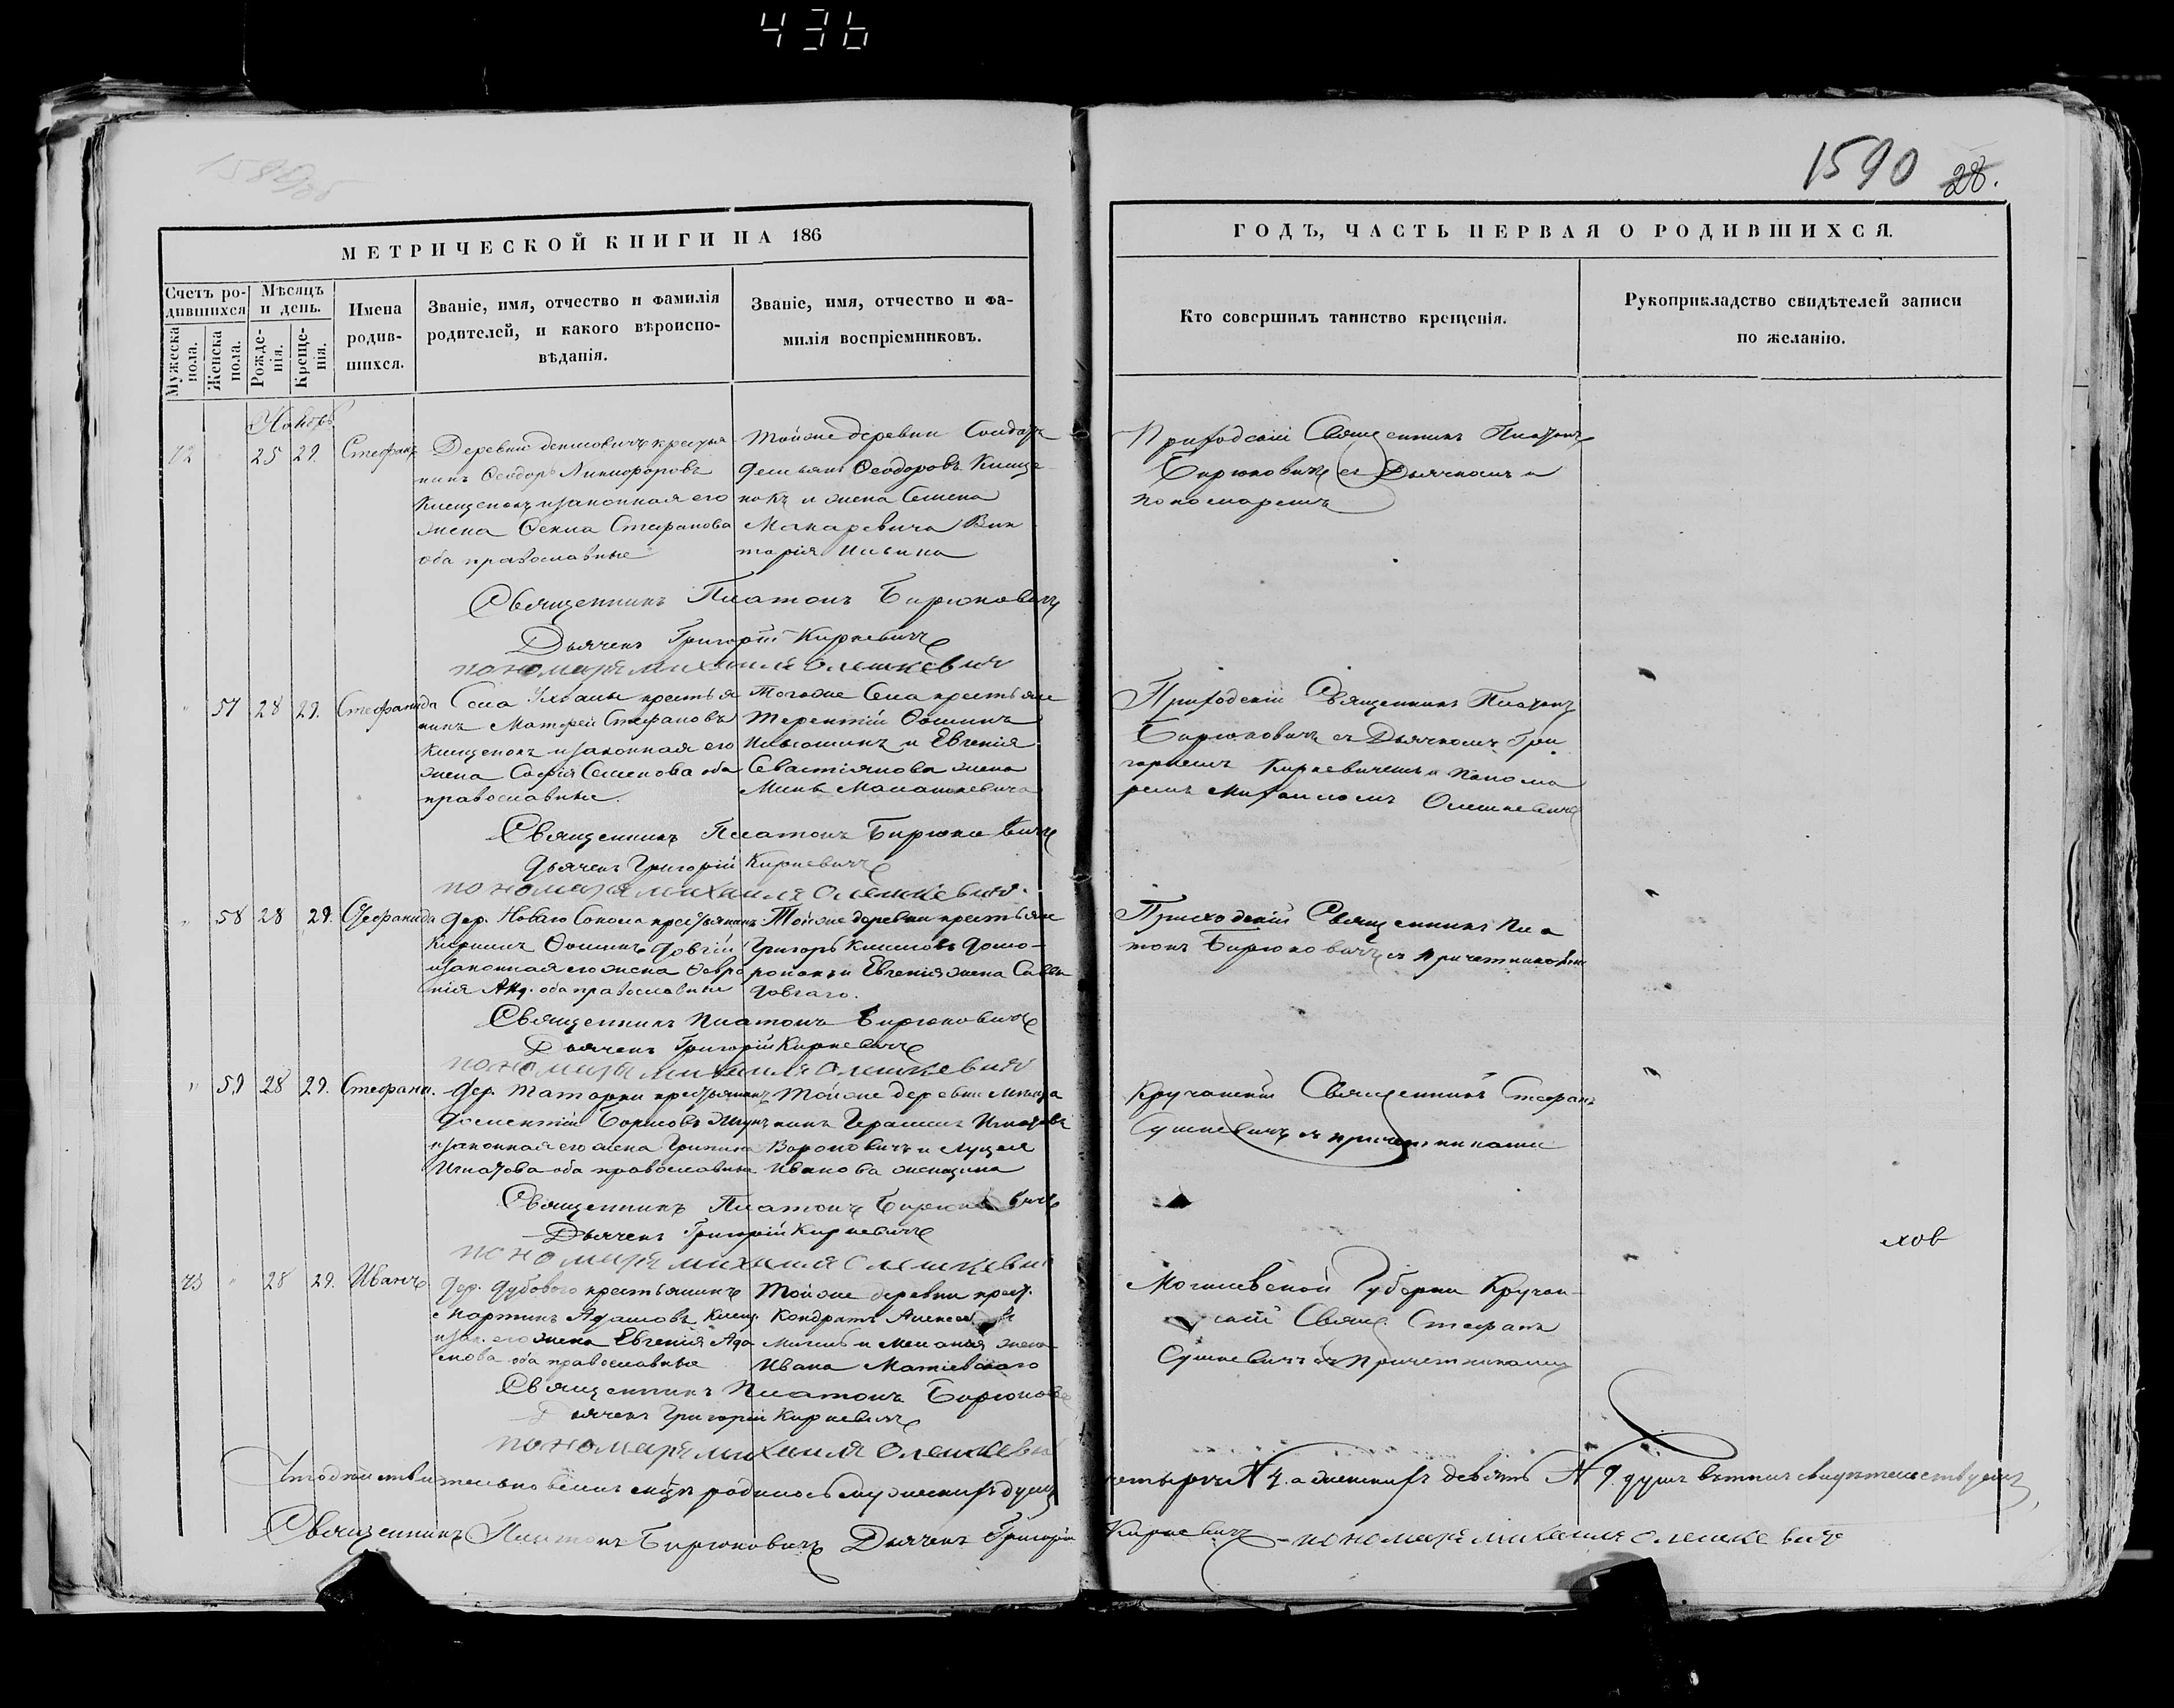 436
1590 28.
МЕТРИЧЕСКОЙ КНИГИ НА 186
Счетъ ро-
дившихся
Мужеска
пола.
Женска
пола.
Мѣсяцъ
и день.
Рожде-
нія.
Креще-
нія.
Имена
родив-
шихся.
Званіе, имя, отчество и фамилія
родителей, и какого вѣроиспо-
вѣданія.
Званіе, имя, отчество и фа-
милія воспріемниковъ.
ГОДЪ, ЧАСТЬ ПЕРВАЯ О РОДИВШИХСЯ.
Кто совершилъ таинство крещенія.
Рукоприкладство свидѣтелей записи
по желанію.
Ноябрь
72 25 29. Стефанъ
Деревни крестья
нинъ Ѳеодоръ Никифоровъ
Клещенокъ и законная его
жена Ѳекла Стефанова
оба православные
Тойже деревни Солдатъ
Демьянъ Ѳеодоровъ Клеще
нокъ и жена Семена
Макаревича Вик
торія Ильина
Приходскій Священникъ Платонъ
Бирюковичъ съ Дьячкомъ и
пономаремъ
Священникъ Платонъ Бирюковичъ
Дьячекъ Григорій Киркевичъ
пономарь михаилъ Олешкевичъ
" 57 28 29. Стефанида
Села Ухвалы крестья
нинъ Матфей Стефановъ
Клещенокъ и законная его
жена Софія Семенова оба
православные.
Тогоже Села крестьяне
Терентій Ѳоминъ
Ильюшинъ и Евгенія
Севастіянова жена
Мины
Приходскій Священникъ Платонъ
Бирюковичъ съ Дьячкомъ Гри
горіемъ Киркевичемъ и Понома
ремъ Михаиломъ Олешкевичемъ
Священникъ Платонъ Бирюковичъ
Дьячекъ Григорій Киркевичъ
пономарь михаилъ Олешкевичъ.
" 58 28 29. Стефанида
дер. Новаго Сокола крестьянинъ
Кириллъ Ѳоминъ Довгій
и законная его жена Февро
нія оба православные
Тойже деревни крестьяне
Григорь
и Евгенія жена
Довгаго.
Приходскій Священникъ Пла
тонъ Бирюковичъ съ причетниками
Священникъ Платонъ Бирюковичъ
Дьячекъ Григорій Киркевичъ
пономарь михаилъ Олешкевичъ
" 59 28 29. Стефанида.
дер. Татарки крестьянинъ
Дометій Борисовъ
и законная его жена Грипина
Игнатова оба православные
Тойже деревни
Герасимъ Игнатовъ
Вороновичъ и Луцея
Иванова
Кручанскій Священникъ Стефанъ
Сушкевичъ съ причетниками
Священникъ Платонъ Бирюковичъ
Дьячекъ Григорій Киркевичъ
пономарь михаилъ Олешкевичъ
73 " 28 29. Иванъ
дер. Дубового крестьянинъ
Мартинъ Адамовъ Клещ.
и зак. его жена Евгенія Ада
мова оба православные
Тойже деревни крест.
Кондратъ Алексеевъ
и Меланія жена
Ивана
Могилевской Губерніи Кручан-
скій Свящ. Стефанъ
Сушкевичъ съ Причетниками
Священникъ Платонъ Бирюкови
Дьячекъ Григорій Киркевичъ
пономарь михаилъ Олешкевичъ
Что дѣйствительно родилось мужескихъ душъ четыре № 4. а женскихъ девять № 9 душъ въ томъ свидѣтельствуемъ
Священникъ Платонъ Бирюковичъ Дьячекъ Григорій Киркевичъ - пономарь михаилъ Олешкевичъ